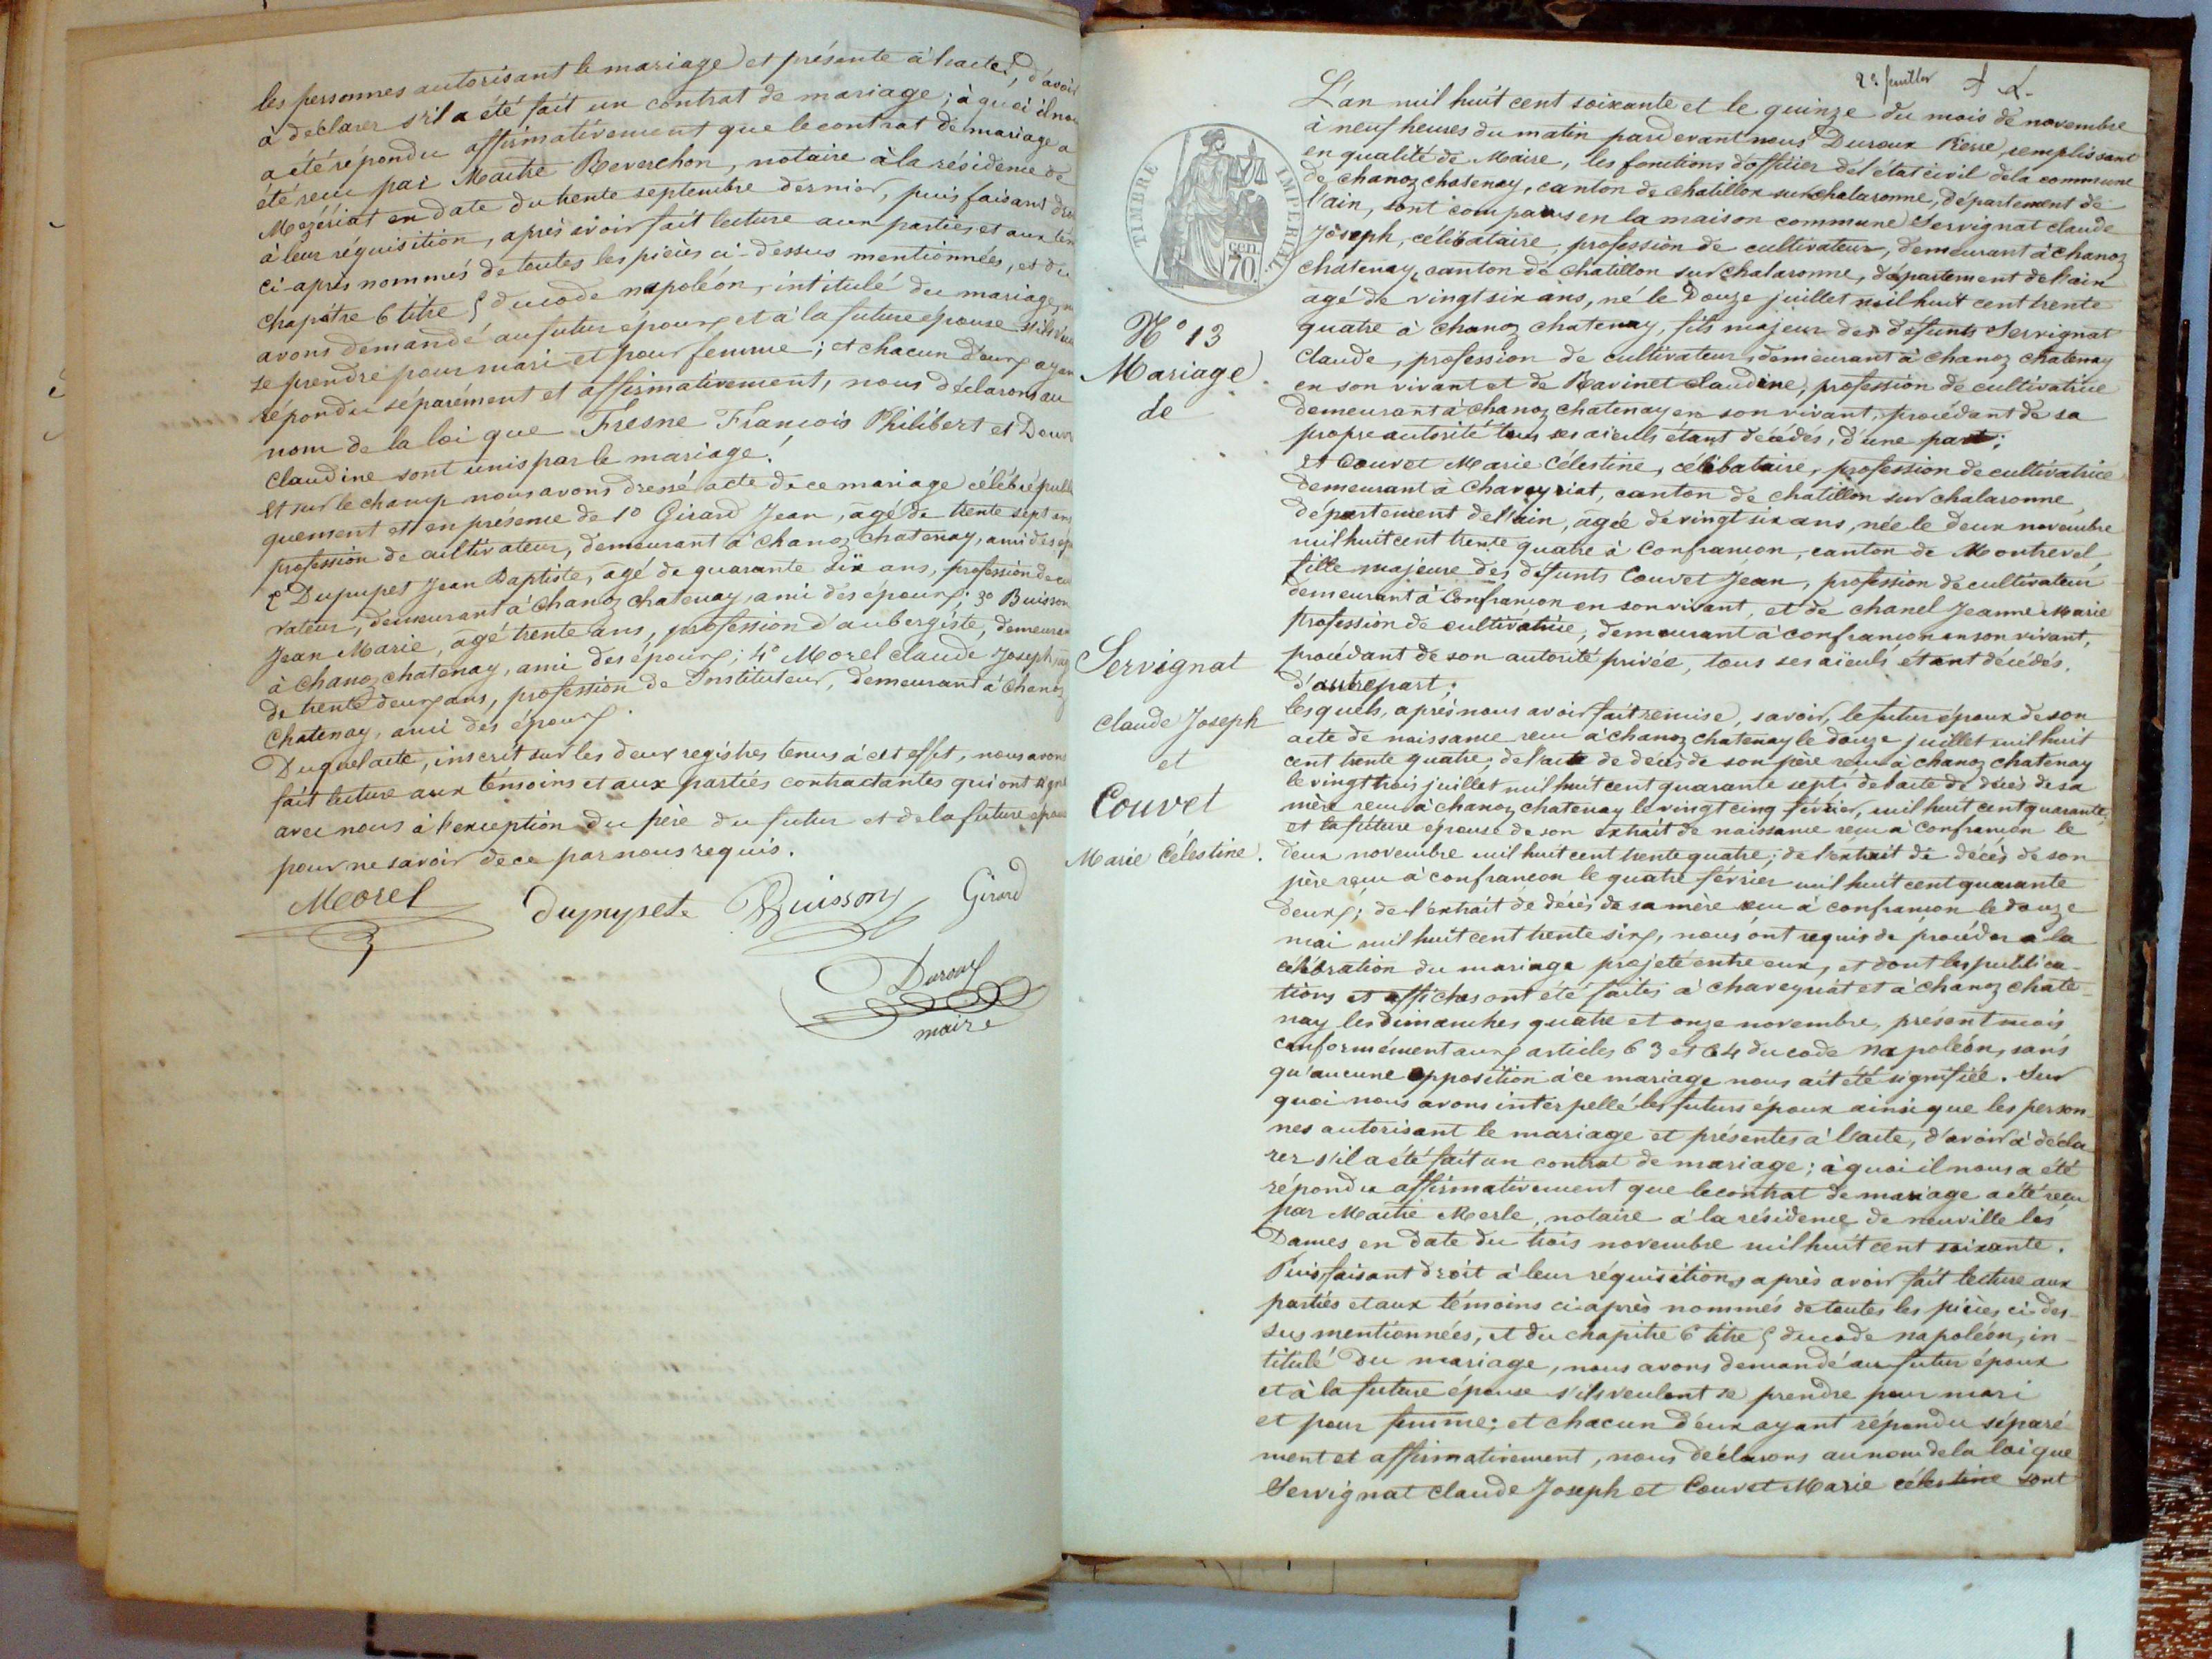 les personnes autorisant le mariage et présente à l'acte, d'avoir
à déclarer s'il a été fait un contrat de mariage; à quoi il nous
a été répondu affirmativement que le contrat de mariage a
été reçu par Maitre Reverchon, notaire à la résidence de
Mezériat en date du trente septembre dernier, puis faisant
à leur réquisition, après avoir fait lecture aux parties et aux
ci-après nommés de toutes les pièces ci-dessus mentionnées, et du
chapitre 6 titre 5 du code napoléon, intitulé du mariage,
avons demandé au futur époux et à la future épouse
se prendre pour mari et pour femme; et chacun d'eux
répondu séparément et affirmativement, nous déclarons au
nom de la loi que Fresne François Philibert et
Claudine sont unis par le mariage.
Et sur le champ nous avons dressé acte de ce mariage célébré
quement et en présence de 1o Girard Jean, agé de trente sept ans
profession de cultivateur, demeurant à chanoz chatenay, ami des
2o Dupupet Jean Baptiste, agé de quarante six ans, profession de
vateur, demeurant à chanoz chatenay, ami des époux; 3o Buisson
Jean Marie, agé trente ans, profession d'aubergiste, demeurant
à chanoz chatenay, ami des époux; 4o Morel Claude Joseph,
de trente deux ans, profession de Instituteur, demeurant à chanoz
chatenay, ami des époux.
Duquel acte, inscrit sur les deux registres tenus à cet effet, nous avons
fait lecture aux témoins et aux parties contractantes qui ont signé
avec nous à l'exception du père du futur et de la future
pour ne savoir de ce par nous requis.
Morel Dupupet Buisson Girard
Duroux
maire
TIMBRE IMPERIAL
70 cen
L'an mil huit cent soixante et le quinze du mois de novembre
à neuf heures du matin pardevant nous Duroux Pierre, remplissant
en qualité de Maire, les fonctions d'officier de l'état civil de la commune
de chanoz chatenay, canton de chatillon sur chalaronne, département de
l'ain, sont comparus en la maison commune Servignat claude
Joseph, célibataire, profession de cultivateur, demeurant à chanoz
chatenay, canton de chatillon sur chalaronne, département de l'ain
agé de vingt six ans, né le Douze juillet mil huit cent trente
quatre à chanoz chatenay, fils majeur des défunts Servignat
Claude, profession de cultivateur, demeurant à chanoz chatenay
en son vivant et de Ravinet claudine, profession de cultivatrice
demeurant à chanoz chatenay en son vivant, procédant de sa
propre autorité tous ses aïeuls étant décédés, d'une part;
et Couvet Marie Célestine, célibataire, profession de cultivatrice
demeurant à Chaveyriat, canton de chatillon sur chalaronne,
département de l'ain, agée de vingt six ans, née le deux novembre
mil huit cent trente quatre à Confrancon, canton de Montrevel,
fille majeure des défunts Couvet Jean, profession de cultivateur
demeurant à Confrancon en son vivant, et de chanel Jeanne Marie
profession de cultivatrice, demeurant à confrancon en son vivant,
procédant de son autorité privée, tous ses aïeuls étant décédés,
d'autre part;
lesquels, après nous avoir fait remise, savoir, le futur époux de son
acte de naissance reçu à chanoz chatenay le douze juillet mil huit
cent trente quatre; de l'acte de décès de son père reçu à chanoz chatenay
le vingt trois juillet mil huit cent quarante sept; de l'acte de décès de sa
mère reçu à chanoz chatenay le vingt cinq février, mil huit cent quarante;
et la future épouse de son extrait de naissance reçu à Confrancon le
deux novembre mil huit cent trente quatre; de l'extrait de décès de son
père reçu à confrancon le quatre février mil huit cent quarante
deux; de l'extrait de décès de sa mère reçu à confrancon le douze
mai mil huit cent trente six, nous ont requis de procéder à la
célébration du mariage projeté entre eux, et dont les publica-
tions et affiches ont été faites à chaveyriat et à chanoz chate-
nay les dimanches quatre et onze novembre, présent mois
conformément aux articles 63 et 64 du code Napoléon, sans
qu'aucune opposition à ce mariage nous ait été signifiée. Sur
quoi nous avons interpellé les futurs époux ainsi que les person-
nes autorisant le mariage et présentes à l'acte, d'avoir à décla
rer s'il a été fait un contrat de mariage; à quoi il nous a été
répondu affirmativement que le contrat de mariage a été reçu
par Maitre Merle, notaire à la résidence de neuville les
Dames en date du trois novembre mil huit cent soixante.
Puis faisant droit à leur réquisition, après avoir fait lecture aux
parties et aux témoins ci-après nommés de toutes les pièces ci-des-
sus mentionnées, et du chapitre 6 titre 5 du code napoléon, in-
titulé du mariage, nous avons demandé au futur époux
et à la future épouse s'ils veulent se prendre pour mari
et pour femme; et chacun d'eux ayant répondu séparé-
ment et affirmativement, nous déclarons au nom de la loi que
Servignat claude Joseph et Couvet Marie célestine sont
No 13
Mariage
de
Servignat
Claude Joseph
et
Couvet
Marie Célestine.